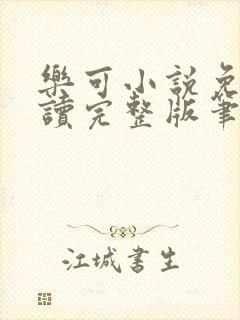 樂可小說免
讀完整版筆
江城書生